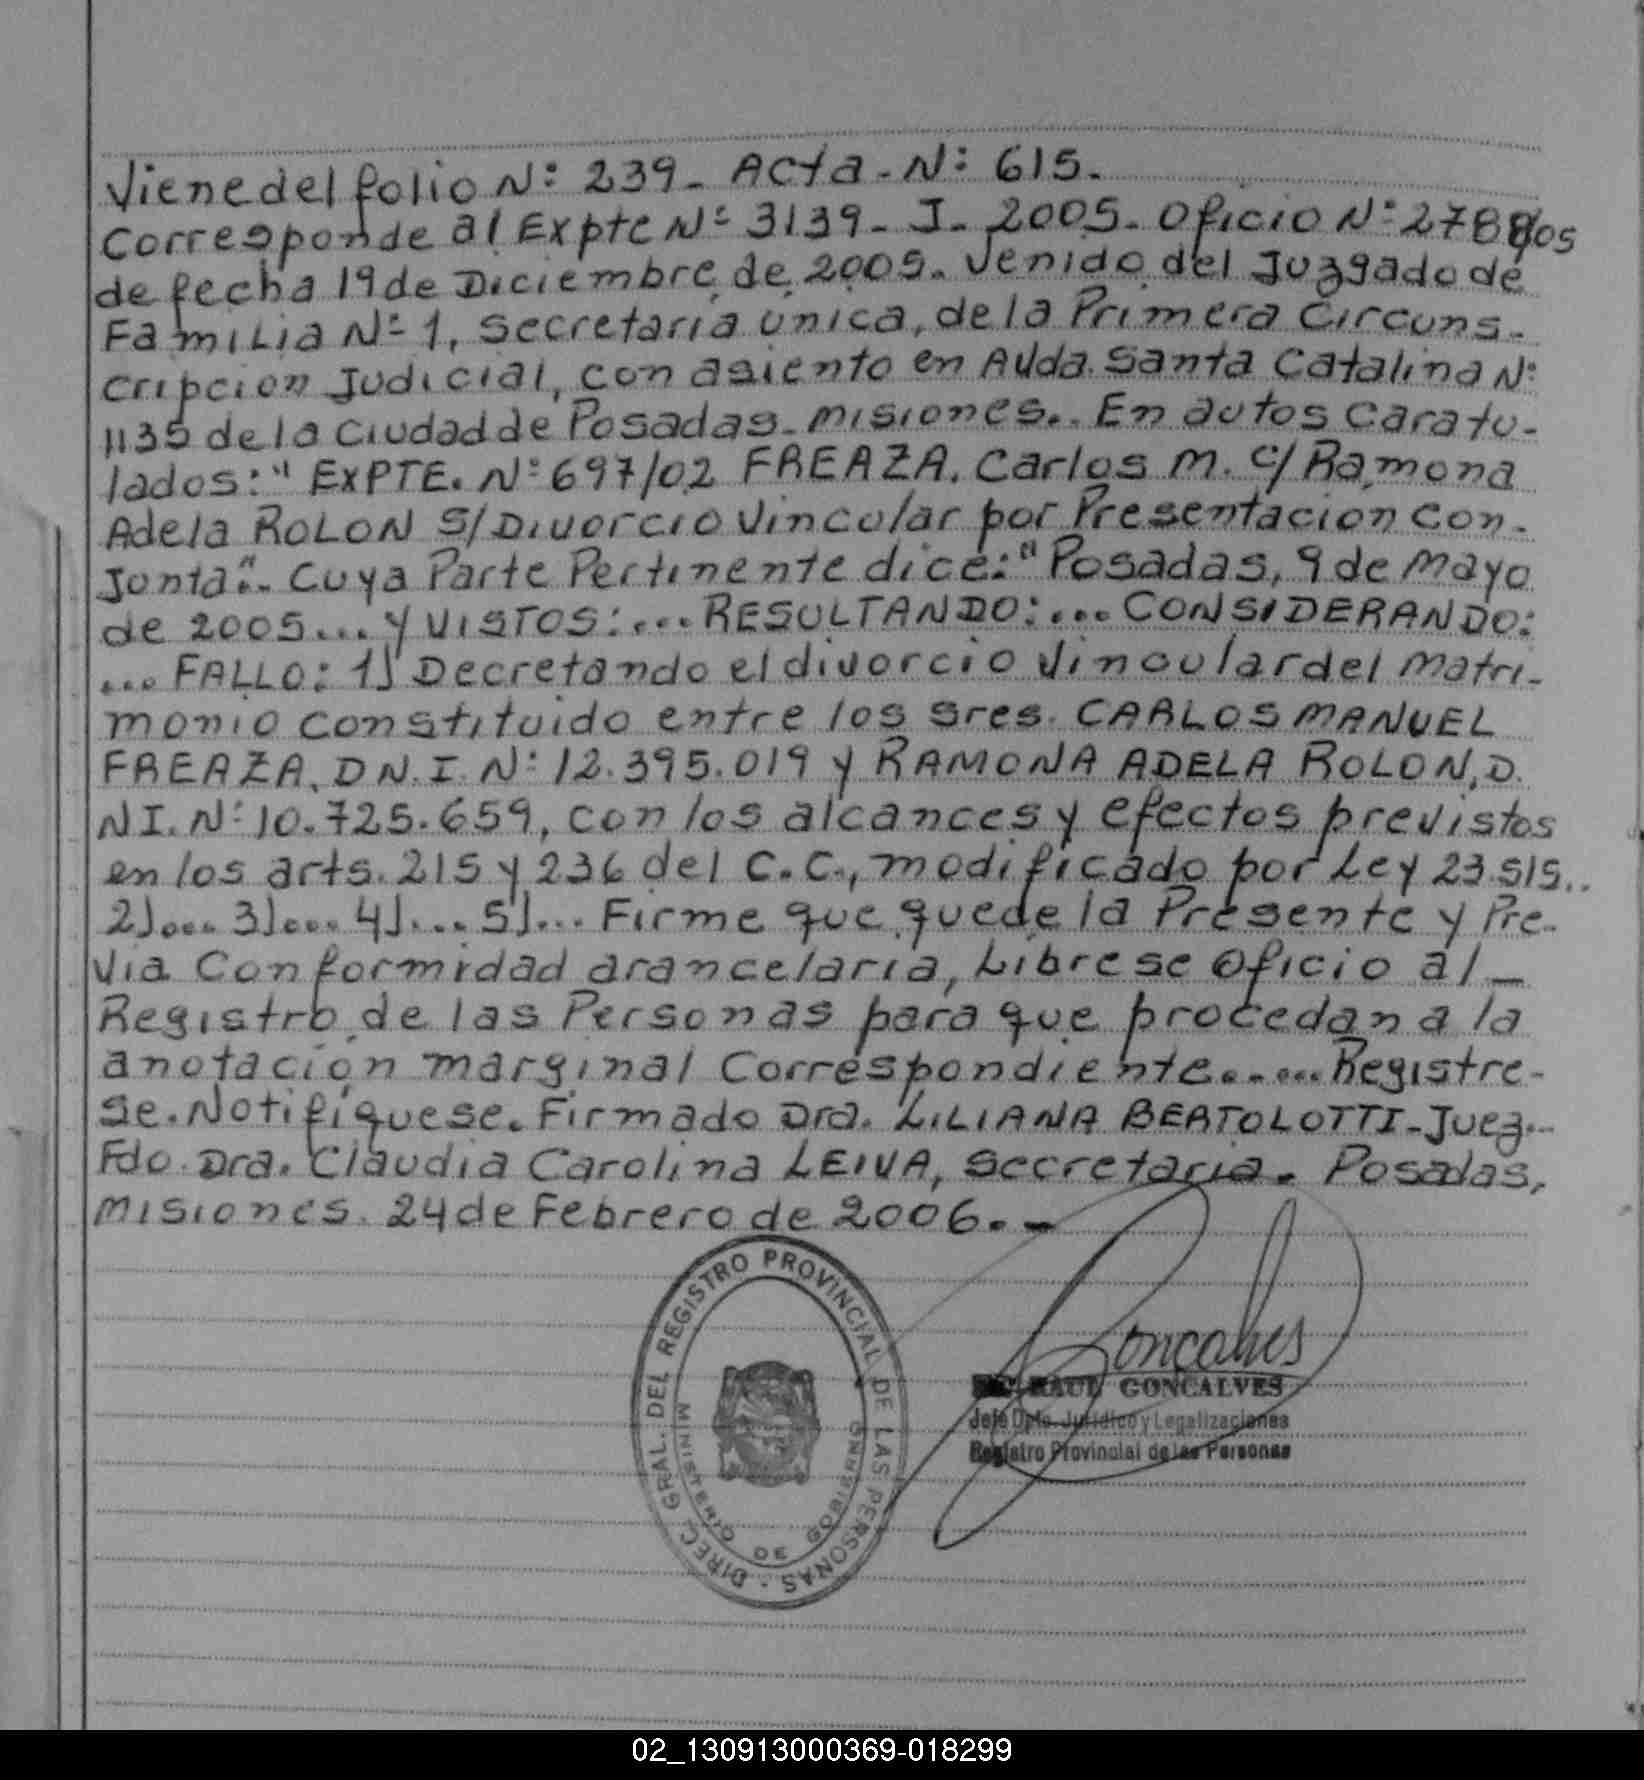 Viene del folio N: 239. Acta. N: 615.
Corresponde al Expte N: 3139. J. 2005. Oficio N:
de fecha 19 de Diciembre de 2005. Venido del Juzgado de
Familia N: 1, Secretaria única, de la Primera Circuns-
cripcion Judicial, con asiento en Avda. Santa Catalina N:
1135 de la Ciudad de Posadas. Misiones.. En autos Caratu-
lados: "EXPTE. N: 697/02 FREAZA. Carlos M. C/ Ramona
Adela ROLON S/ Divorcio Vincular por Presentacion Con-
Junta". Cuya Parte Pertinente dice: "Posadas, 9 de Mayo
de 2005... y VISTOS:... RESULTANDO:... CONSIDERANDO:
... FALLO: 1) Decretando el divorcio Vincular del Matri-
monio constituido entre los Sres. CARLOS MANUEL
FREAZA. D N. I. N: 12.395.019 y RAMONA ADELA ROLON, D.
N I. N: 10.725.659, con los alcances y efectos previstos
en los arts. 215 y 236 del C.C., modificado por Ley 23.515..
2)... 3)... 4)... 5)... Firme que quede la Presente y Pre-
Via Conformidad arancelaria, Librese Oficio al _
Registro de las Personas para que procedan a la
anotación marginal Correspondiente...... Registre-
se. Notifíquese. Firmado Dra. LILIANA BERTOLOTTI - Juez...
Fdo. Dra. Claudia Carolina LEIVA, Secretaria. Posadas,
Misiones. 24 de Febrero de 2006. -
DIREC. GRAL. DEL REGISTRO PROVINCIAL DE LAS PERSONAS
MINISTERIO DE GOBIERNO
Goncalves
RAUL GONCALVES
Jefe Dpto. Jurídico y Legalizaciones
Registro Provincial de las Personas
02_130913000369-018299